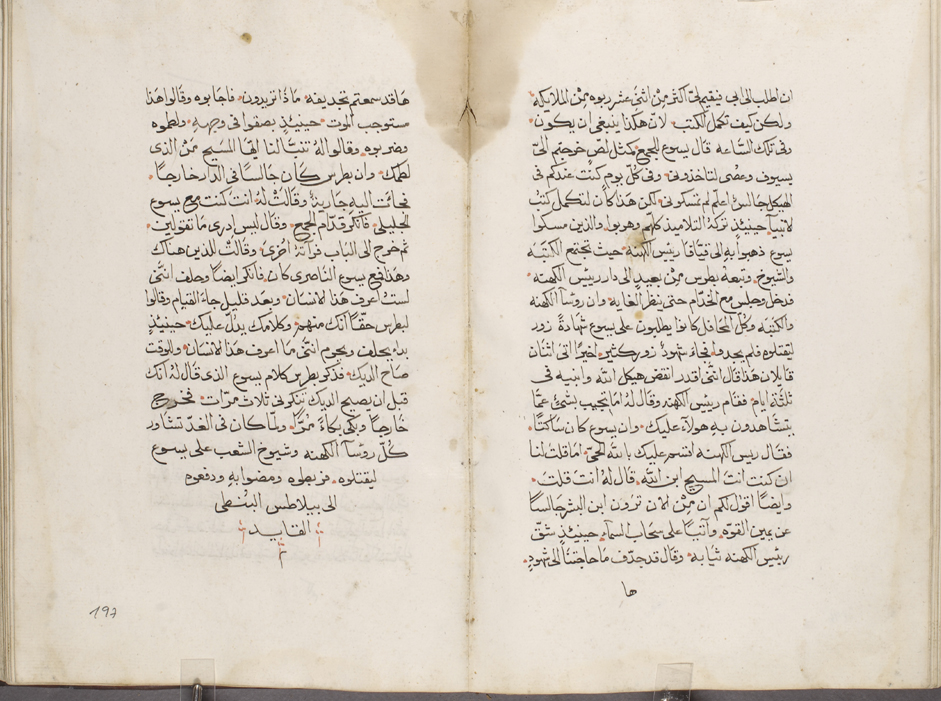 ان اطلب الى ابي فيقيم لي اكثر من اثنى عشر ربوه من الملايكه
ولكن كيف تكمل الكتب لان هكذا ينبغى ان يكون
وفى تلك الساعه قال يسوع للجمع كمثل لص خرجتم الىّ
بسيوف وعصى لتاخذونى وفى كل يوم كنت عندكم فى
الهيكل جالس اعلم لم تمسكونى لكن هذا كان لتكمل كتب
الانبيآ حينيذٍ تركهُ التلاميذ كلهم وهربوا والذين مسكوا
يسوع ذهبوا به الى قيّافا رييس الكهنه حيث تجتمع الكتبه
والشيوخ وتبعهُ بطرس من بعيدٍ الى دار رييس الكهنه
فدخل وجلس مع الخدّام حتى ينظر الغايه وان روسآ الكهنه
والكتبه وكلّ المحافل كانوا يطلبون على يسوع شهادةً زور
ليقتلوه فلم يجدوا فجاء شهودُ زور كثير اخيرًا اتى اثنان
قايلان هذا قال انّى اقدر انقض هيكل الله وابنيه فى
ثلثة ايام فقام رييس الكهنه وقال لهُ اما تجيب بشئ عمّا
يتشاهدون به هولآء عليك وان يسوع كان ساكتًا
فقال رييس الكهنه اقسم عليك بالله الحىّ اما قلت لنا
ان كنت انت المسيح ابن الله قال لهُ انت قلت
وايضًا اقول لكم ان من الان ترون ابن البشر جالسًا
عن يمين القوّه وآتيًا على سحاب السمآء حينيذٍ شقّ
رييس الكهنه ثيابه وقال قد جدّف ما حاجتنا الى شهودٍ
ها
ها قد سمعتم تجديفه ماذا تريدون فاجابوه وقالوا هذا
مستوجب الموت حينيذٍ بصقوا فى وجهه ولطموه
وضربوه وقالوا لهُ تنبّا لنا ايّها المسيح من الذى
لطمك وان بطرس كان جالسًا فى الدار خارجًا
فجاءت اليه جاريةٌ وقالت لهُ انت كنت مع يسوع
الجليلى فانكر قدّام الجمع وقال ليس ادرى ما تقولين
ثم خرج الى الباب فراتهُ اخرى وقالت للذين هناك
وهذا مع يسوع الناصرى كان فانكر ايضًا وحلف انّنى
لستُ اعرف هذا الانسان وبعد قليلٍ جاء القيام وقالوا
لبطرس حقًّا انك منهم وكلامك يدلّ عليك حينيذٍ
بدا يحلف ويحرم انّنى ما اعرف هذا الانسان وللوقت
صاح الديك فذكر بطرس كلام يسوع الذى قال لهُ انك
قبل ان يصيح الديك تنكرنى ثلاث مرّات فخرج
خارجًا وبكى بكاءً مُرًّا ولمّا كان فى الغد تشاور
كلّ روسآ الكهنه وشيوخ الشعب على يسوع
ليقتلوه فربطوه ومضوا به ودفعوه
الى بيلاطس البُنطى
القايد
197